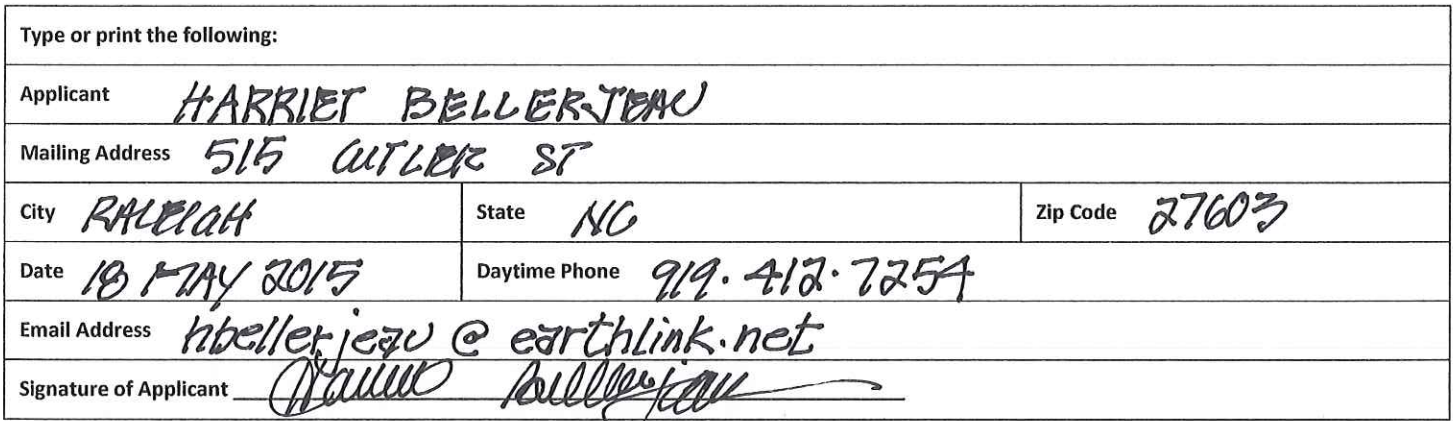 Type or print the following:
Applicant HARRIET BELLERJEAU
Mailing Address 515 CUTLER ST
City RALEIGH State NC Zip Code 27603
Date 18 MAY 2015 Daytime Phone 919.412.7254
Email Address hbellerjeau @ earthlink.net
Signature of Applicant Harriet Bellerjeau